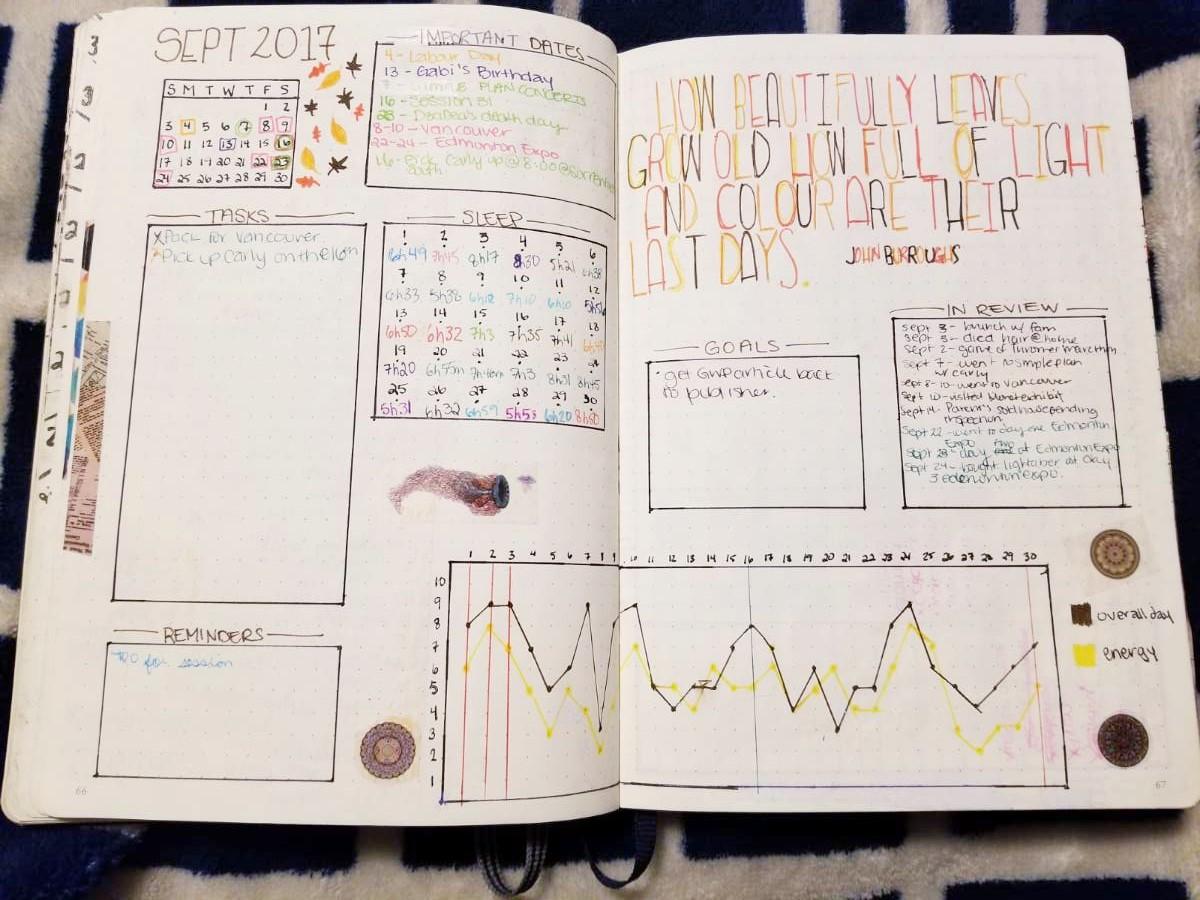 SEPT 2017
S M T W T F S
1 2
3 4 5 6 7 8 9
10 11 12 13 14 15 16
17 18 19 20 21 22 23
24 25 26 27 28 29 30
IMPORTANT DATES
4 - Labour Day
13 - Gabi's Birthday
7 - SIMPLE PLAN CONCERTS
16 - Session 31
23 - death day
8-10 - Vancouver
22-24 - Edmonton Expo
16 - Pick Carly up @ 8:00 @
south
TASKS
X Pack for Vancouver
Pick up Carly on the 16th
SLEEP
1 2 3 4 5 6
6h49 7h45 8h17 8h30 5h21 6h38
7 8 9 10 11 12
6h33 5h38 6h12 7h10 6h10
13 14 15 16 17 18
6h50 6h32 7h3 7h35 7h41
19 20 21 22 23 24
7h20 6h55m 7h3 8h31 8h45
25 26 27 28 29 30
5h31 6h32 6h59 5h53 6h20
REMINDERS
for session
66
HOW BEAUTIFULLY LEAVES
GROW OLD HOW FULL OF LIGHT
AND COLOUR ARE THEIR
LAST DAYS.
JOHN BURROUGHS
GOALS
· get article back
to publisher.
IN REVIEW
Sept 3 - brunch w/ fam
Sept 3 - died hair @ home
Sept 2 - game of marathon
Sept 7 - went to simple plan
w/ carly
Sept 8-10 - went to Vancouver
Sept 10 - visited exhibit
Sept 14 - Parents sold house pending
inspection
Sept 22 - went to day one Edmonton
Expo
Sept 23 - day two at Edmonton Expo
Sept 24 - bought lightsaber at day
3 edmonton Expo.
1 2 3 4 5 6 7 8 9 10 11 12 13 14 15 16 17 18 19 20 21 22 23 24 25 26 27 28 29 30
10
9
8
7
6
5
4
3
2
1
overall day
energy
67